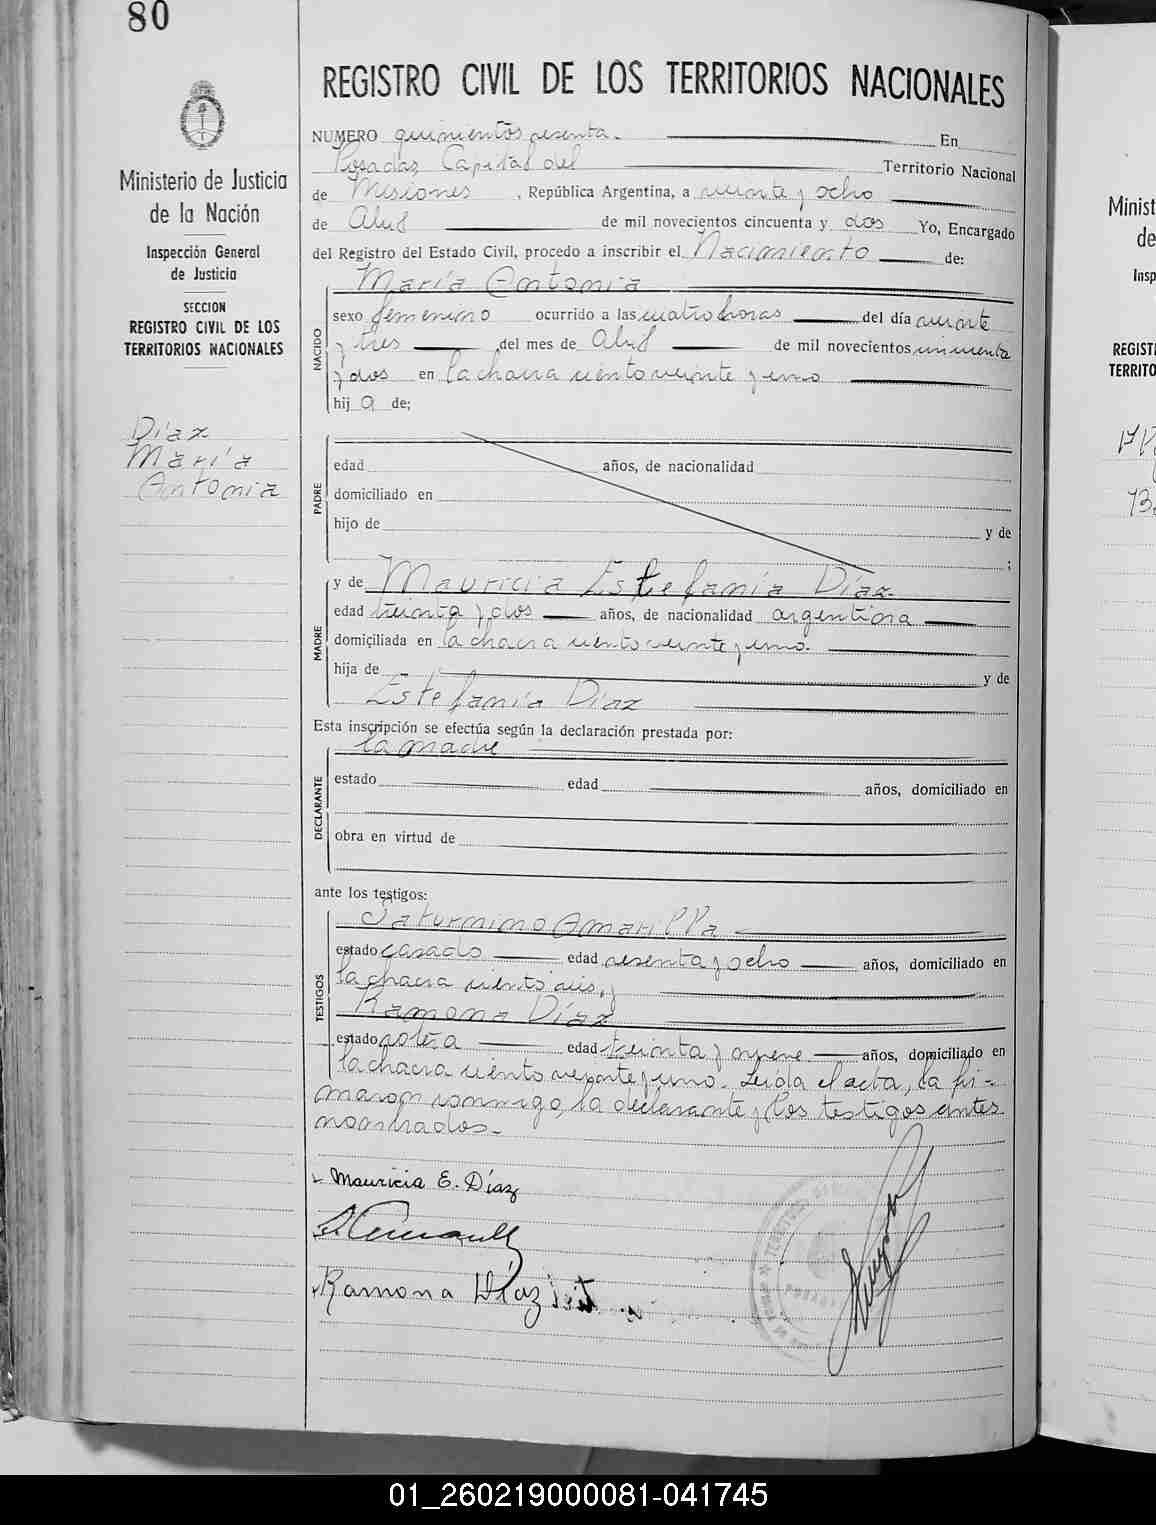 80
REGISTRO CIVIL DE LOS TERRITORIOS NACIONALES
Ministerio de Justicia
de la Nación
Inspección General
de Justicia
SECCION
REGISTRO CIVIL DE LOS
TERRITORIOS NACIONALES
Díaz
María
Antonia
NUMERO quinientos sesenta. En
Posadas Capital del Territorio Nacional
de Misiones, República Argentina, a veinte y ocho
de Abril de mil novecientos cincuenta y dos Yo, Encargado
del Registro del Estado Civil, procedo a inscribir el Nacimiento de:
María Antonia
NACIDO
sexo femenino ocurrido a las cuatro horas del día veinte
y tres del mes de Abril de mil novecientos cincuenta
y dos en la chacra ciento veinte y uno
hij a de;
PADRE
edad años, de nacionalidad
domiciliado en
hijo de y de
;
MADRE
y de Mauricia Estefanía Díaz
edad treinta y dos años, de nacionalidad argentina
domiciliada en la chacra ciento veinte y uno.
hija de y de
Estefanía Díaz
Esta inscripción se efectúa según la declaración prestada por:
la madre
DECLARANTE
estado edad años, domiciliado en
obra en virtud de
ante los testigos:
TESTIGOS
Saturnino Amarilla
estado casado edad sesenta y ocho años, domiciliado en
la chacra ciento seis, y
Ramona Díaz
estado soltera edad treinta y nueve años, domiciliado en
la chacra ciento veinte y uno. Leída el acta, la fir-
maron conmigo la declarante y los testigos antes
nombrados.-
Mauricia E. Díaz
Ramona Díaz
Minist
de
Insp
REGISTI
TERRITO
01_260219000081-041745